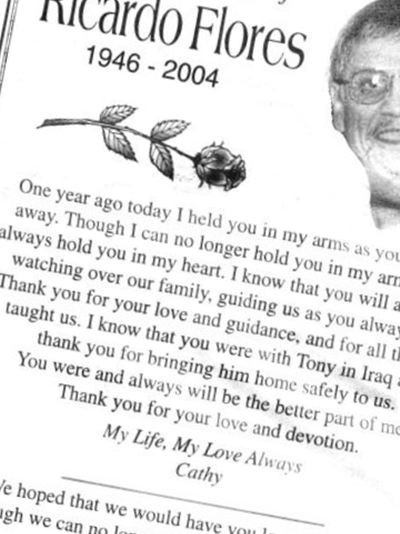 Ricardo Flores
1946 - 2004
One year ago today I held you in my arms as you
away. Though I can no longer hold you in my
always hold you in my heart. I know that you will
watching over our family, guiding us as you
Thank you for your love and guidance, and for all
taught us. I know that you were with Tony in Iraq
thank you for bringing him home safely to us.
You were and always will be the better part of me
Thank you for your love and devotion.
My Life, My Love Always
Cathy
hoped that we would have you
we can no